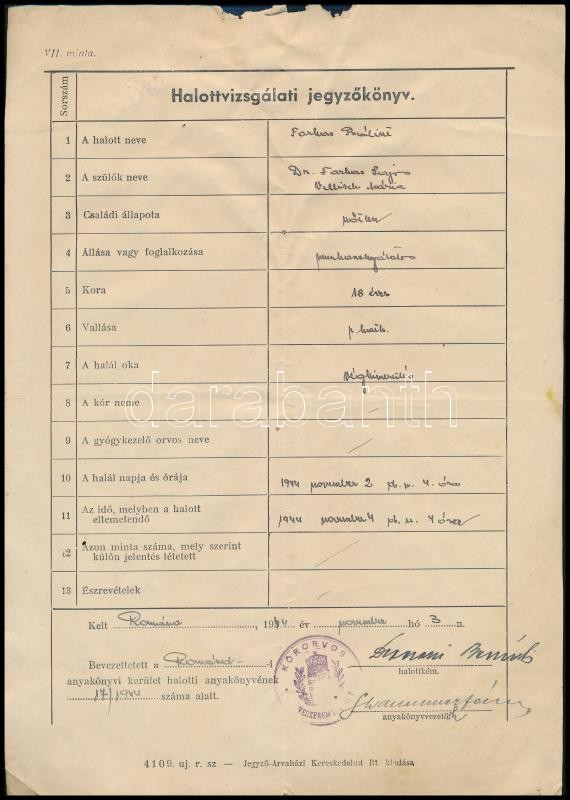 VII. minta.
Sorszám
Halottvizsgálati jegyzőkönyv.
1 A halott neve Farkas Bálint
2 A szülők neve Dr. Farkas Lajos
Vellisch Mária
3 Családi állapota nőtlen
4 Állása vagy foglalkozása munkaszolgálatos
5 Kora 18 éves
6 Vallása r. kath.
7 A halál oka végkimerülés
8 A kór neme /
9 A gyógykezelő orvos neve /
10 A halál napja és órája 1944 november 2 du. 4. óra
11 Az idő, melyben a halott
eltemetendő 1944 november 4 du. 4 óra
12 Azon minta száma, mely szerint
külön jelentés tétetett /
13 Észrevételek /
Kelt Románd, 1944 év november hó 3-n.
Bevezettetett a Románd-i
anyakönyvi kerület halotti anyakönyvének
17/1944 száma alatt.
KÖRORVOS
VESZPRÉM
halottkém.
anyakönyvvezető
4109. uj. r. sz. — Jegyző-Árvaházi Kereskedelmi Rt. kiadása
darabanth